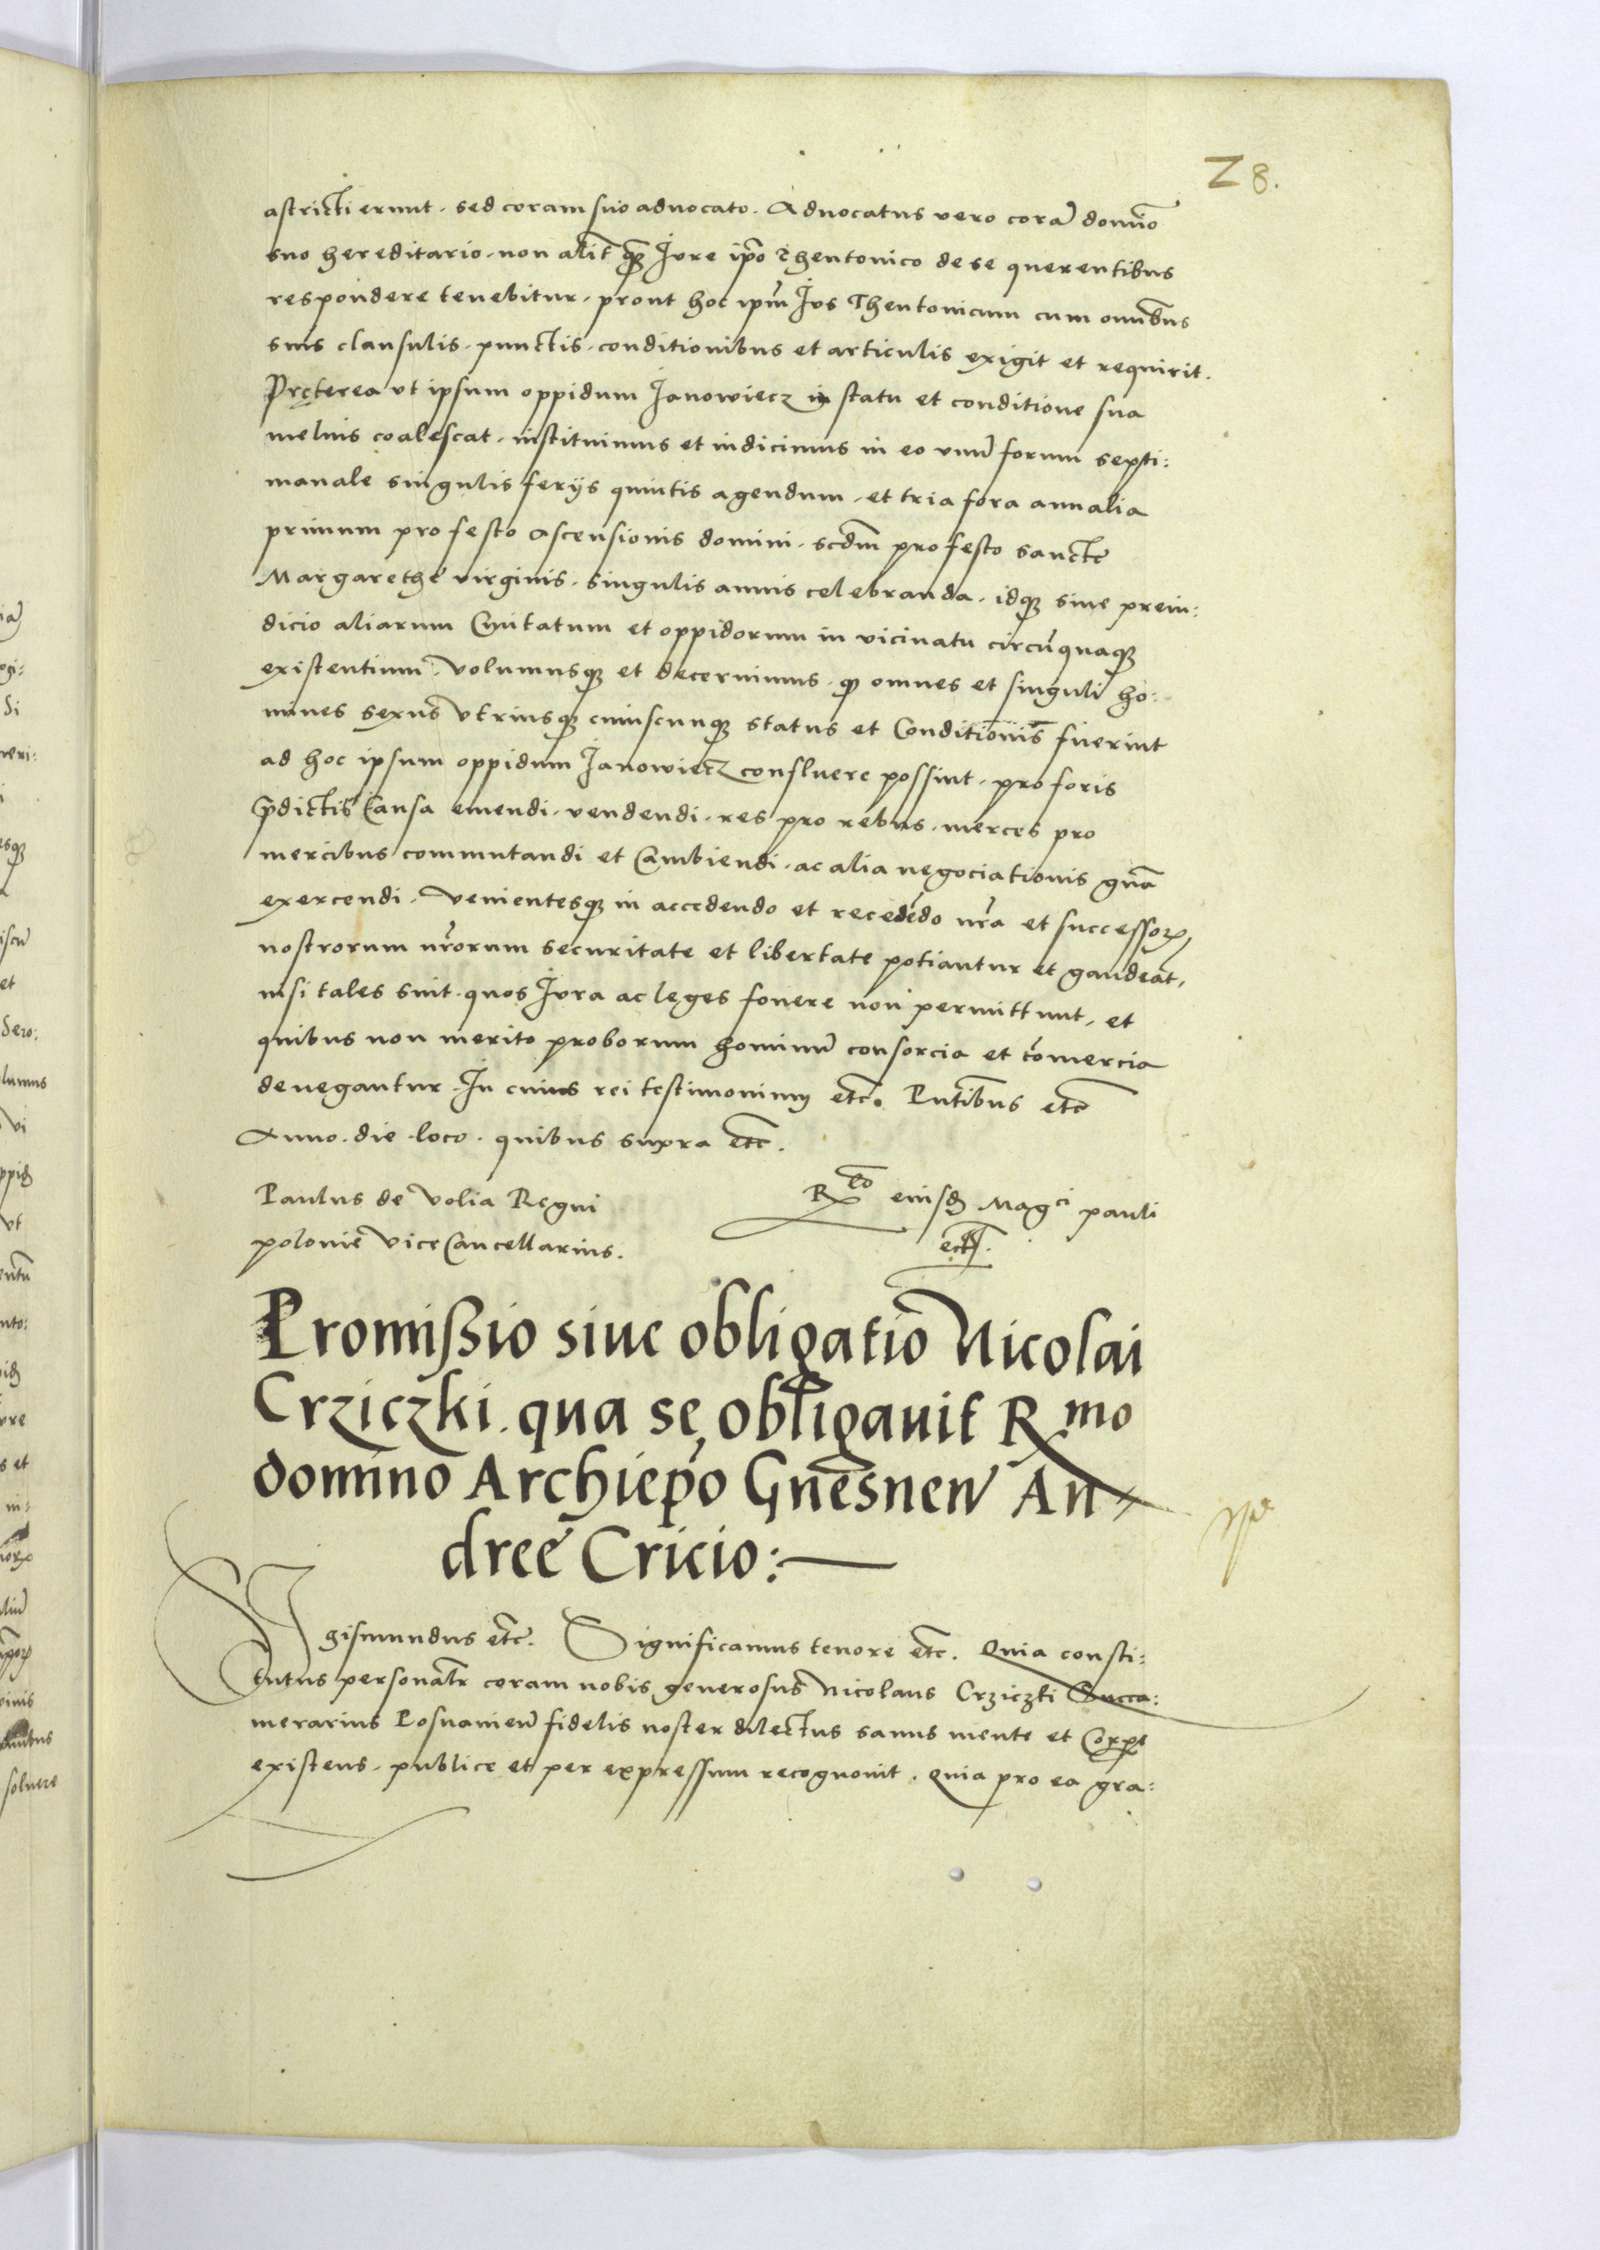 28.
astricti erunt. sed coram suo aduocato. Aduocatus vero corã domĩo
suo hereditario. non alit̃ q̃ Jure ip̃o Theutonico de se querentibus
respondere tenebitur. prout hoc ip̃m Jus Theutonicum cum om̃ibus
suis clausulis. punctis. conditionibus et articulis exigit et requirit.
Pręterea vt ipsum oppidum Janowiecz in statu et conditione sua
melius coalescat. instituimus et indicimus in eo vnũ forum septi:
manale singulis ferijs quintis agendum. et tria fora annalia
primum pro festo Ascensionis domini. scd̃m pro festo sancte
Margarethe virginis. singulis annis celebranda. idq3 sine preiu:
dicio aliarum Ciuitatum et oppidorum in vicinatu circũquaq3
existentium. Volumusq3 et decernimus. q̃ omnes et singuli ho:
mines sexus vtriusq3 cuiuscunq3 status et Conditionis fuerint
ad hoc ipsum oppidum Janowiecz confluere possint. pro foris
p̃dictis Causa emendi. vendendi. res pro rebus. merces pro
mercibus commutandi et Cambiendi. ac alia negociationis gñã
exercendi. Venientesq3 in accedendo et recedẽdo nr̃a et successor̃
nostrorum nr̃orum securitate et libertate potiantur et gaudeãt,
nisi tales sint. quos Jura ac leges fouere non permittunt, et
quibus non merito proborum hominũ consorcia et cõmercia
denegantur. In cuius rei testimonium etc̃. Pñtibus etc̃
Anno. die. loco. quibus supra etc̃.
Paulus de Volia Regni
polonie Vice Cancellarius.
R.to eiusd̃ Mag.ci pauli
etc̃.
Promißio siue obligatio Nicolai
Crziczki. qua se obligauit R.mo
domino Archiep̃o Gnesnen̄ An
dree Cricio:—
Sigismundus etc̃. Significamus tenore etc̃. Quia consti:
tutus personalr̃ coram nobis generosus Nicolaus Crziczki Succa:
merarius Posnanien̄ fidelis noster dilectus sanus mente et Corpe
existens. publice et per expressum recognouit. quia pro ea gra: